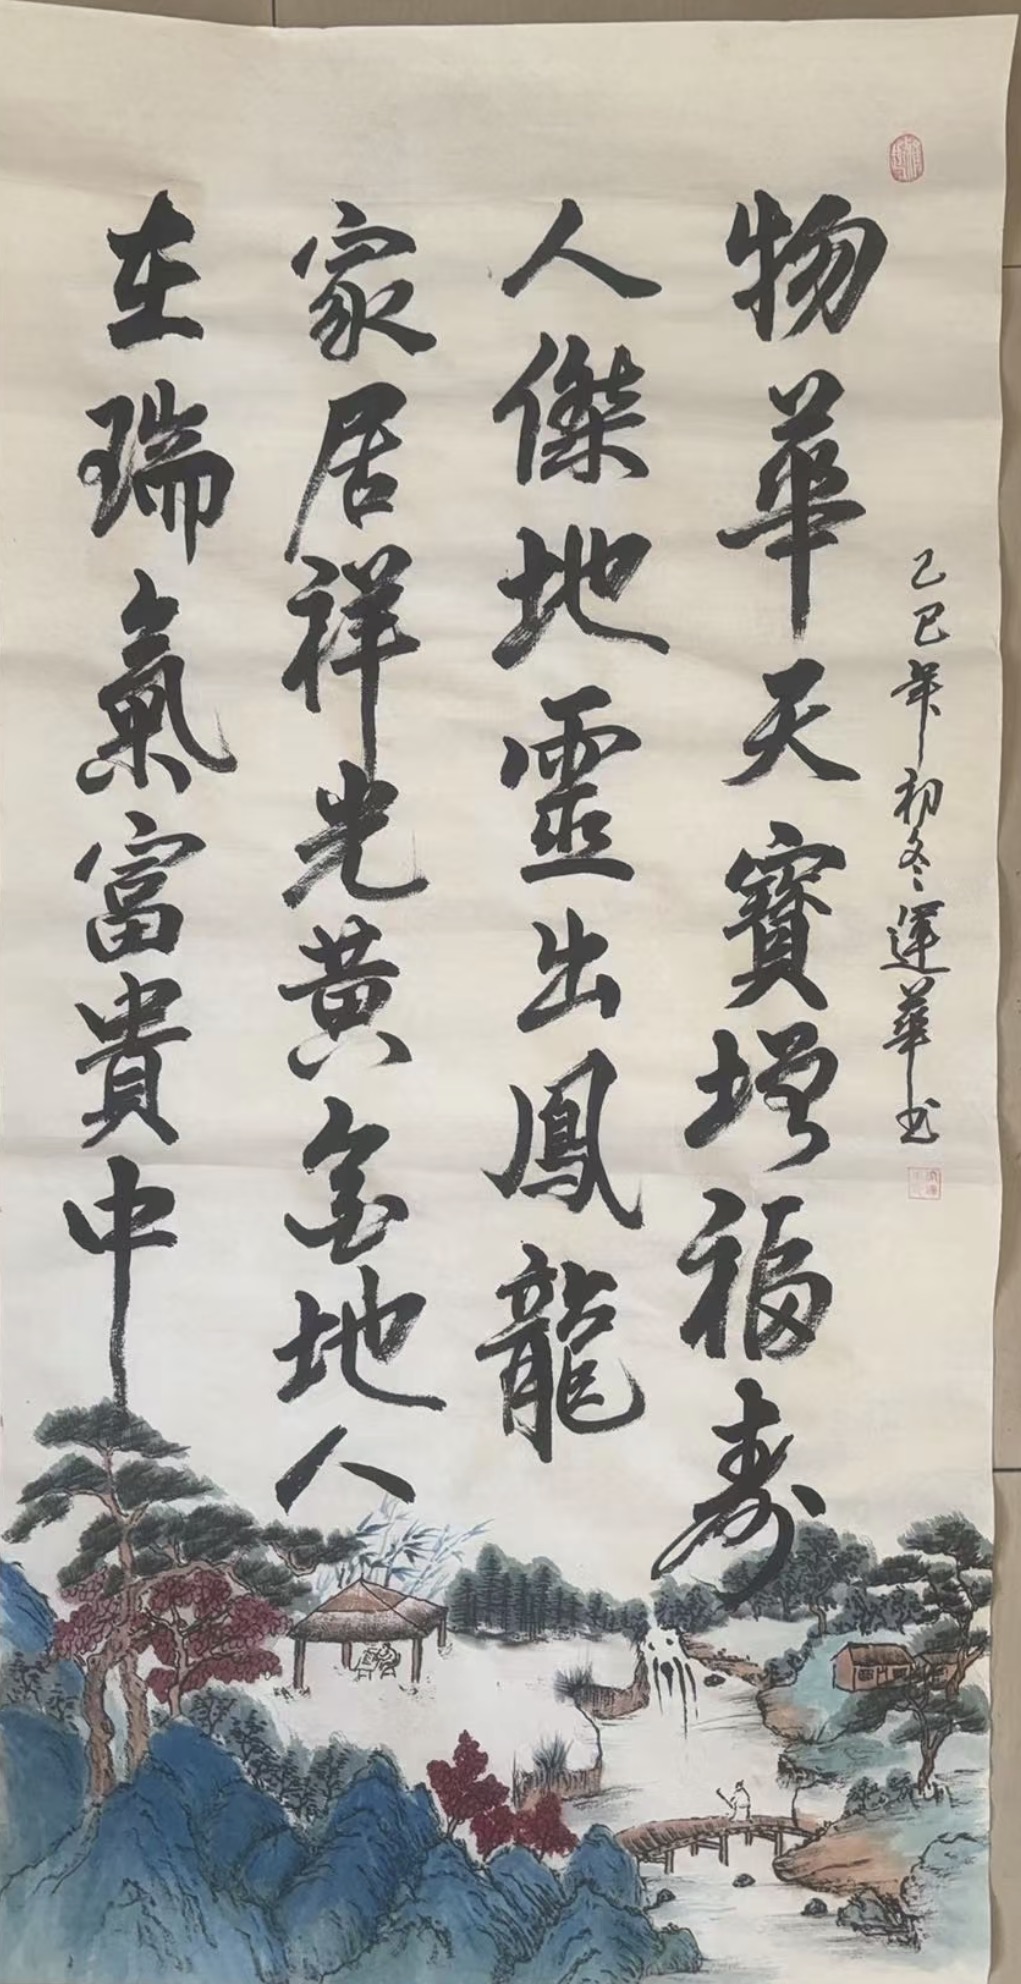 物華天寶增福壽
人傑地靈出鳳龍
家居祥光黃金地人
在瑞氣富貴中
乙巳年初冬運華书